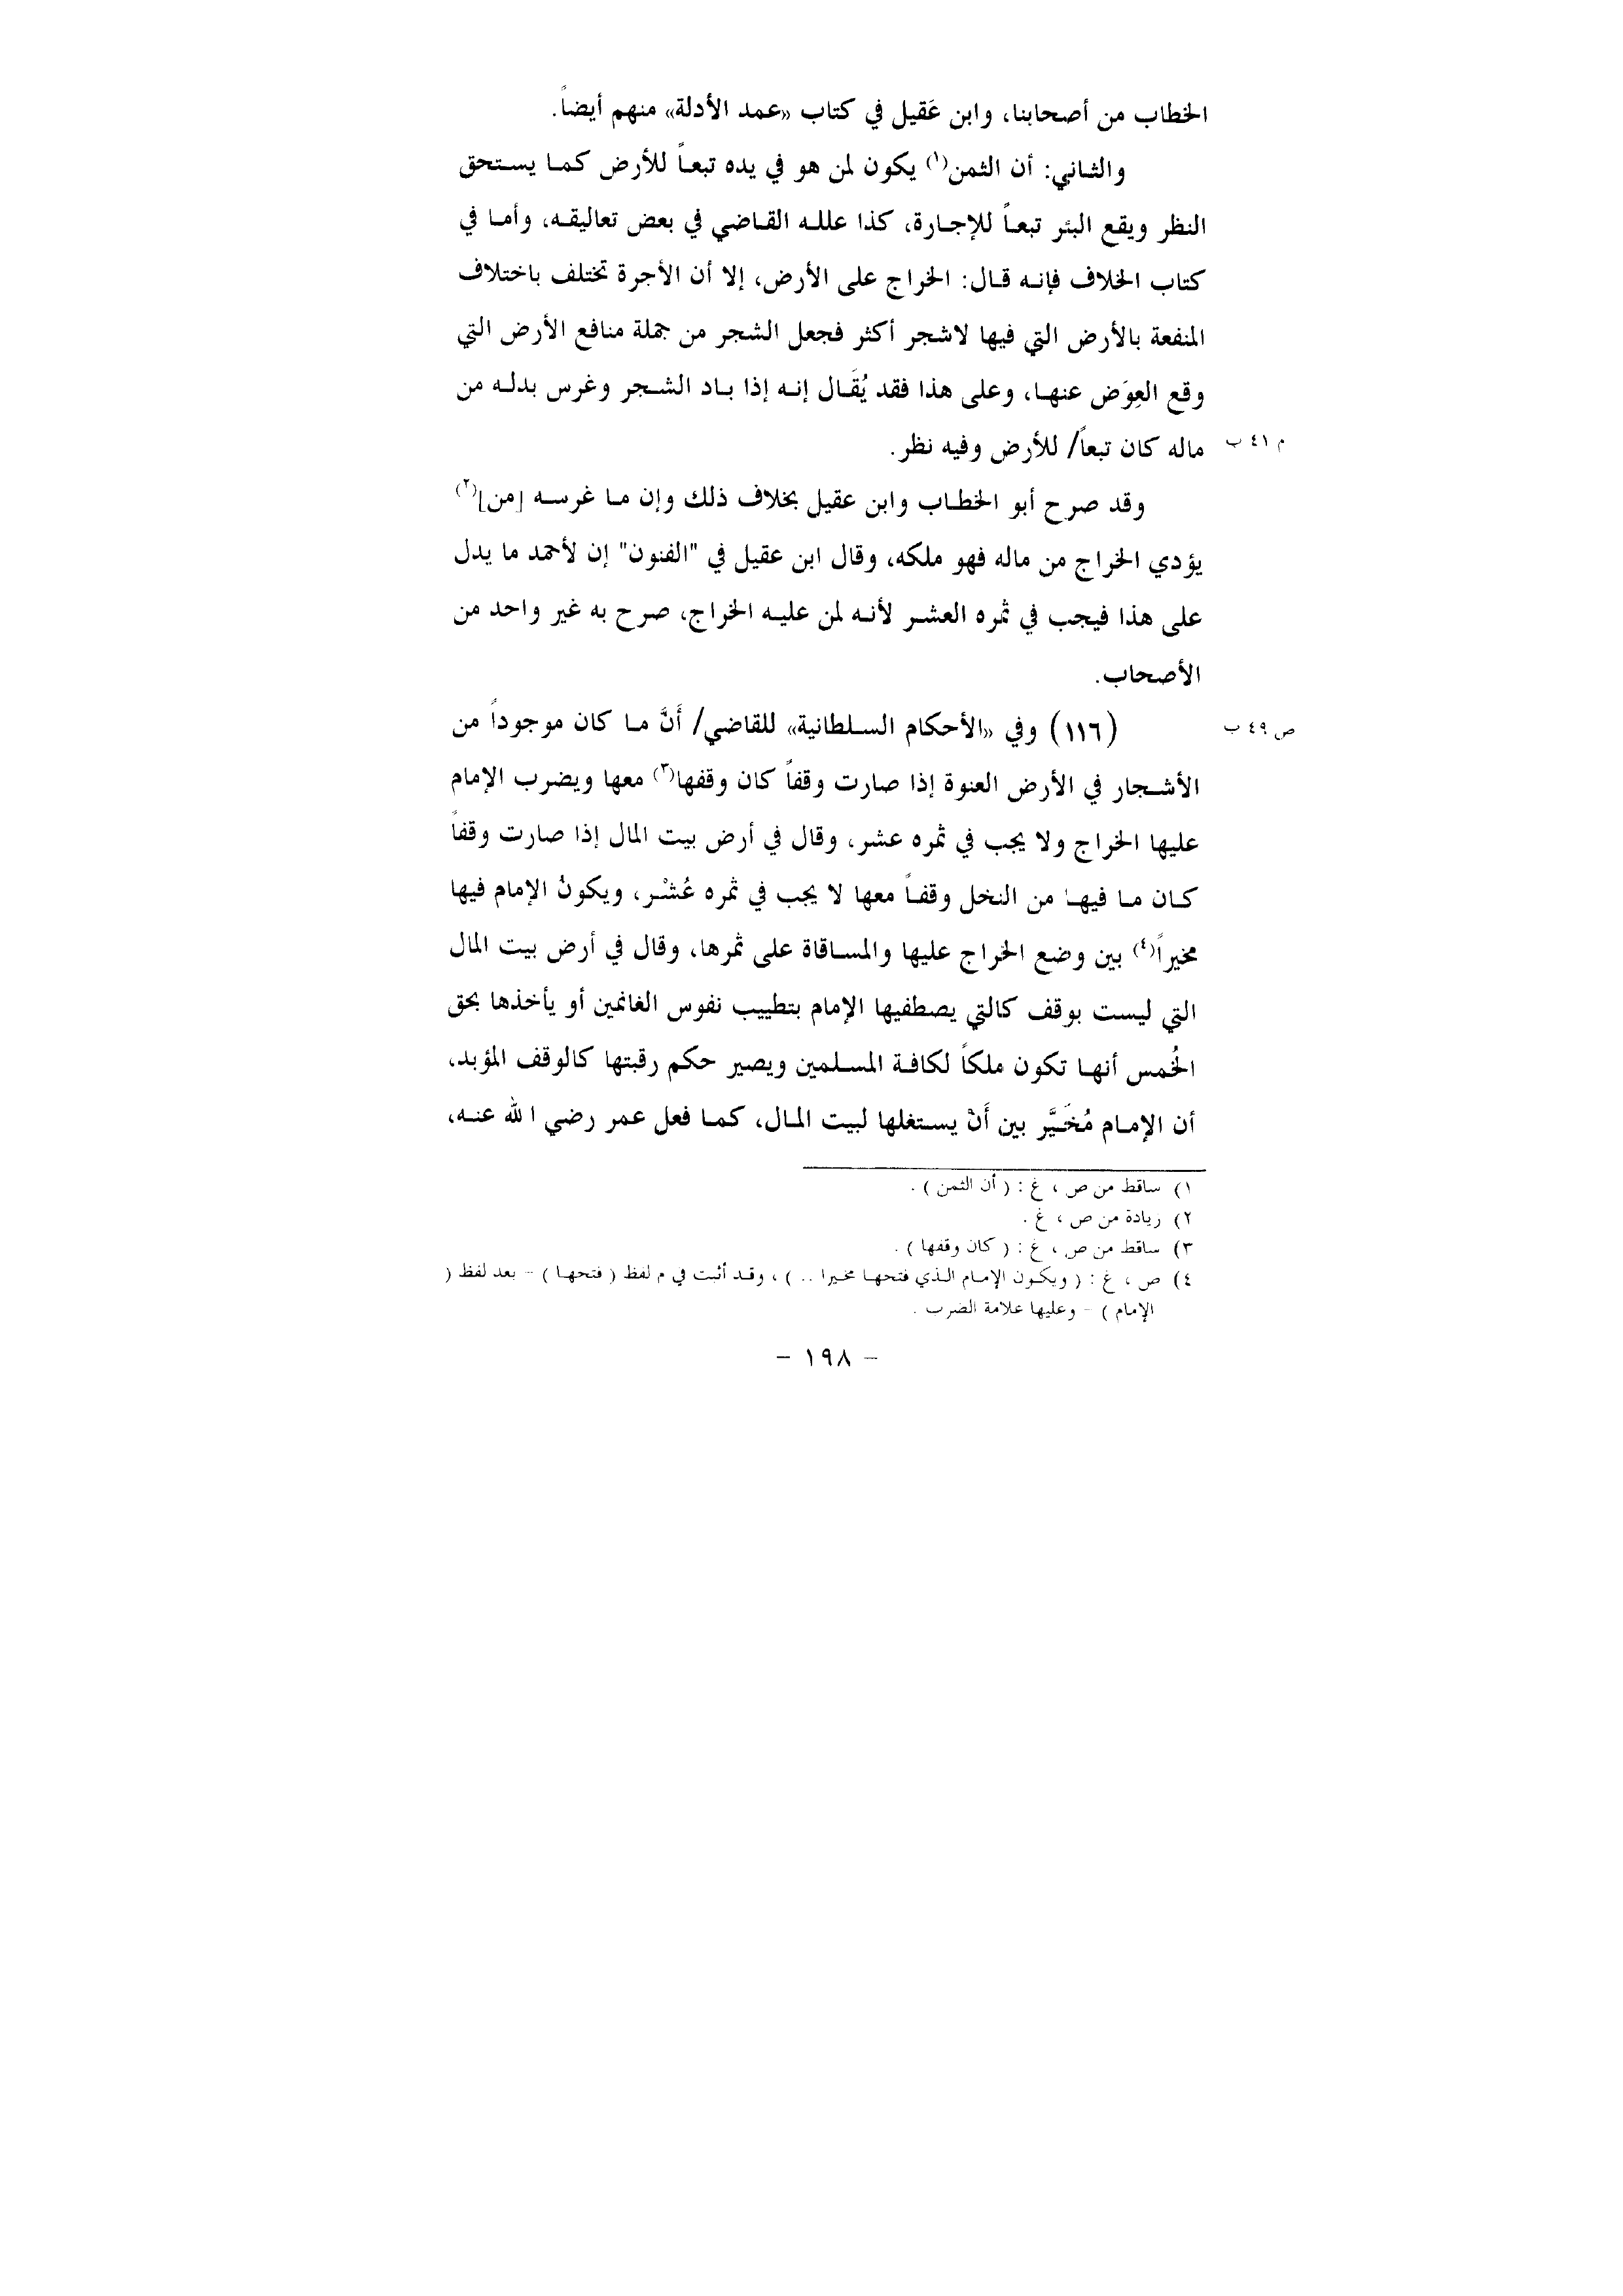 الخطاب من أصحابنا، وابن عَقيل في كتاب «عمد الأدلة» منهم أيضاً.
والثاني: أن الثمن(١) يكون لمن هو في يده تبعاً للأرض كما يستحق
النظر ويقع البئر تبعاً للإجارة، كذا علله القاضي في بعض تعاليقه، وأما في
كتاب الخلاف فإنه قال: الخراج على الأرض، إلا أن الأجرة تختلف باختلاف
المنفعة بالأرض التي فيها لاشجر أكثر فجعل الشجر من جملة منافع الأرض التي
وقع العِوَض عنها، وعلى هذا فقد يُقَال إنه إذا باد الشجر وغرس بدله من
ماله كان تبعاً/ للأرض وفيه نظر.
م ٤١ ب
وقد صرح أبو الخطاب وابن عقيل بخلاف ذلك وإن ما غرسه [من](٢)
يؤدي الخراج من ماله فهو ملكه، وقال ابن عقيل في "الفنون" إن لأحمد ما يدل
على هذا فيجب في ثمره العشر لأنه لمن عليه الخراج، صرح به غير واحد من
الأصحاب.
(١١٦) وفي «الأحكام السلطانية» للقاضي/ أَنَّ ما كان موجوداً من
ص ٤٩ ب
الأشجار في الأرض العنوة إذا صارت وقفاً كان وقفها(٣) معها ويضرب الإمام
عليها الخراج ولا يجب في ثمره عشر، وقال في أرض بيت المال إذا صارت وقفاً
كان ما فيها من النخل وقفاً معها لا يجب في ثمره عُشْر، ويكونُ الإمام فيها
مخيراً(٤) بين وضع الخراج عليها والمساقاة على ثمرها، وقال في أرض بيت المال
التي ليست بوقف كالتي يصطفيها الإمام بتطييب نفوس الغانمين أو يأخذها بحق
الخُمس أنها تكون ملكاً لكافة المسلمين ويصير حكم رقبتها كالوقف المؤبد،
أن الإمام مُخَيَّر بين أَنْ يستغلها لبيت المال، كما فعل عمر رضي الله عنه،
١) ساقط من ص ، غ : ( أن الثمن ) .
٢) زيادة من ص ، غ .
٣) ساقط من ص ، غ : ( كان وقفها ) .
٤) ص ، غ : ( ويكون الإمام الذي فتحها مخيرا .. ) ، وقد أثبت في م لفظ ( فتحها ) - بعد لفظ (
الإمام ) - وعليها علامة الضرب .
- ١٩٨ -